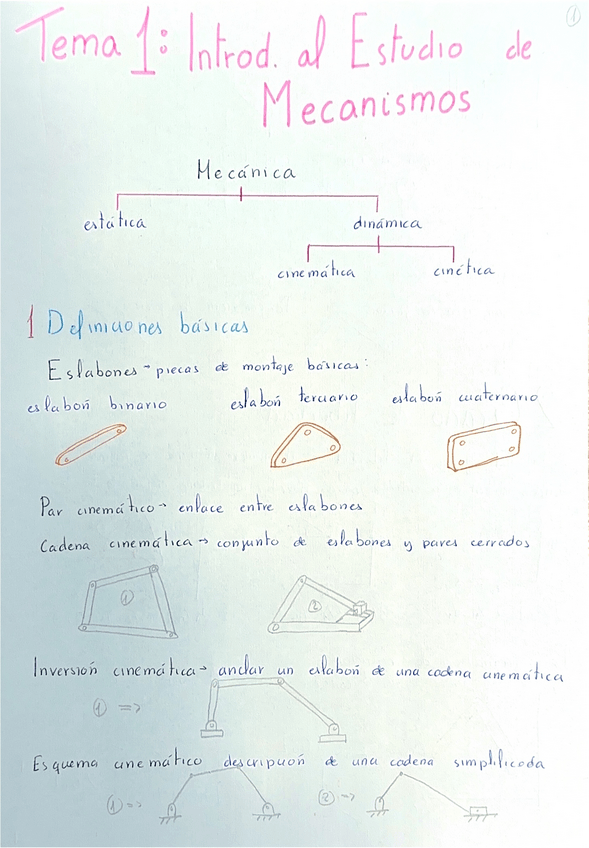 1
Tema 1: Introd. al Estudio de
Mecanismos
Mecánica
estática dinámica
cinemática cinética
1 Definiciones básicas
Eslabones → piezas de montaje básicas:
eslabón binario eslabón terciario eslabón cuaternario
Par cinemático → enlace entre eslabones
Cadena cinemática → conjunto de eslabones y pares cerrados
① ②
Inversión cinemática → anclar un eslabón de una cadena cinemática
① =>
Esquema cinemático descripción de una cadena simplificada
① => ② =>